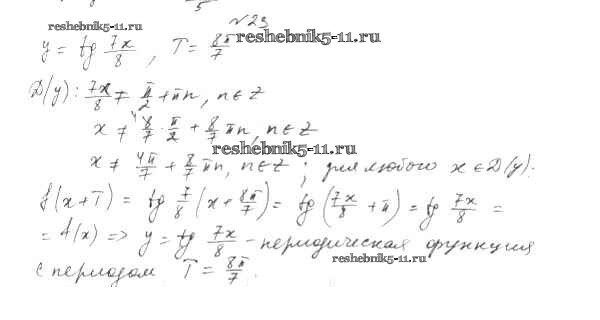 5
№23
reshebnik5-11.ru
y = tg 7x/8, T = 8π/7
reshebnik5-11.ru
D(y): 7x/8 ≠ π/2 + πn, n ∈ Z
x ≠ 8/7 · π/2 + 8/7 πn, n ∈ Z
reshebnik5-11.ru
x ≠ 4π/7 + 8/7 πn, n ∈ Z; для любого x ∈ D(y):
f(x+T) = tg 7/8 (x + 8π/7) = tg (7x/8 + π) = tg 7x/8 =
= f(x) => y = tg 7x/8 - периодическая функция
reshebnik5-11.ru
с периодом T = 8π/7.